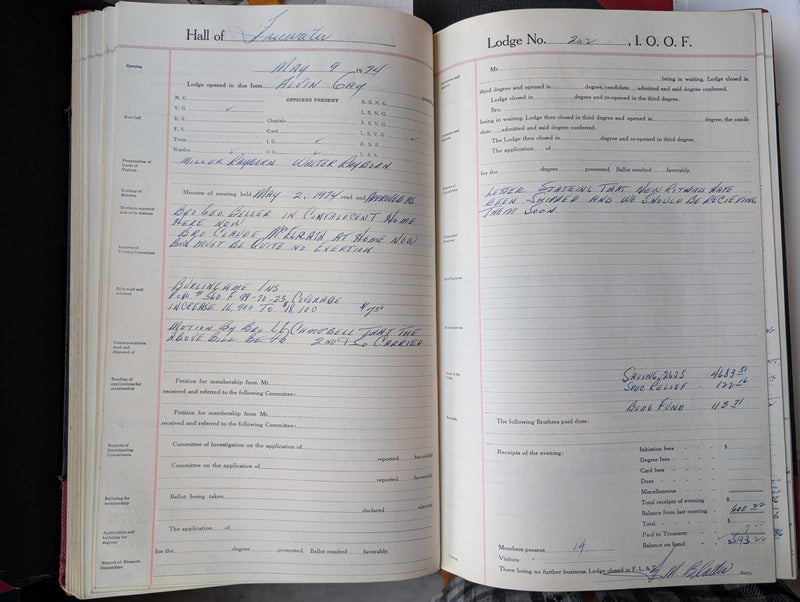 Hall of Freewater
May 9, 1974
Opening
Lodge opened in due form Alvin Gay
OFFICERS PRESENT
N. G.
R. S. N. G.
L. S. N. G.
V. G. ✓
Roll Call
R. S.
Chaplain
R. S. V. G.
F. S.
Cond.
L. S. V. G. ✓
Treas.
I. G. ✓
R. S. S.
Warden ✓
O. G. ✓
L. S. S.
Presentation of Cards of Visitors
MILLER RAYBORN WALTER RAYBORN
Reading of Minutes
Minutes of meeting held MAY 2, 1974 read and APPROVED AS
Brothers reported sick or in distress
BRO GEO BELLER IN CONVALECENT HOME
HERE NOW
BRO CLAUDE McGRATH AT HOME NOW
Reports of Visiting Committee
BUT MUST BE QUITE NO EXERTION
Bills read and referred
BURLINGAME INS
POL # 560 F 99-70-23 COVERAGE
INCREASE 16,900 TO 18,100 $7.00
MOTION BY BRO CAMPBELL THAT THE
Communications read and disposed of
ABOVE BILL BE PAID 2ND CARRIED
Reading of applications for membership
Petition for membership from Mr.
received and referred to the following Committee:
Petition for membership from Mr.
received and referred to the following Committee:
Reports of Investigating Committees
Committee of Investigation on the application of
reported favorably
Committee on the application of
reported favorably
Balloting for membership
Ballot being taken
declared elected
Application and balloting for degrees
The application of
for the degree presented. Ballot resulted favorably.
Report of Finance Committee
Lodge No. 202, I. O. O. F.
Mr.
being in waiting, Lodge closed in
third degree and opened in degree, candidate admitted and said degree conferred.
Lodge closed in degree and re-opened in the third degree.
Bro.
being in waiting, Lodge then closed in third degree and opened in degree, the candi-
date admitted and said degree conferred.
The Lodge then closed in degree and re-opened in third degree.
The application of
for the degree presented. Ballot resulted favorably.
LETTER STATEING THAT NEW RITUALS HAVE
BEEN SHIPPED AND WE SHOULD BE RECIEVING
THEM SOON
SAVING 2625 4683 51
SPEC RELIEF 122 16
BLDG FUND 113 21
The following Brothers paid dues:
Receipts of the evening:
Initiation fees $
Degree fees
Card fees
Dues
Miscellaneous
Total receipts of evening $
Balance from last meeting 600
Total $
Paid to Treasurer 7
Balance on hand 593
Members present 14
Visitors
There being no further business, Lodge closed in F. L. &
Secy.